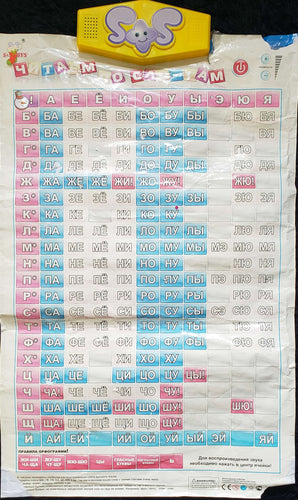 SOS
ЧИТАЕМ ПО СЛОГАМ
А Е Ё И О У Ы Э Ю Я
Б БА БЕ БЁ БИ БО БУ БЫ БЮ БЯ
В ВА ВЕ ВЁ ВИ ВО ВУ ВЫ ВЯ
Г ГА ГЕ ГИ ГО ГУ ГЮ
Д ДА ДЕ ДЁ ДИ ДО ДУ ДЫ ДЮ ДЯ
Ж ЖА ЖЕ ЖЁ ЖИ! ЖО ЖУ! ЖЮ!
З ЗА ЗЕ ЗЁ ЗИ ЗО ЗУ ЗЫ ЗЮ ЗЯ
К КА КЕ КИ КО КУ
Л ЛА ЛЕ ЛЁ ЛИ ЛО ЛУ ЛЫ ЛЮ ЛЯ
М МА МЕ МЁ МИ МО МУ МЫ МЭ МЮ МЯ
Н НА НЕ НЁ НИ НО НУ НЫ НЮ НЯ
П ПА ПЕ ПЁ ПИ ПО ПУ ПЫ ПЭ ПЮ ПЯ
Р РА РЕ РЁ РИ РО РУ РЫ РЭ РЮ РЯ
С СА СЕ СЁ СИ СО СУ СЫ СЭ СЮ СЯ
Т ТА ТЕ ТЁ ТИ ТО ТУ ТЫ ТЭ ТЮ ТЯ
Ф ФА ФЕ ФЁ ФИ ФО ФУ ФЫ ФЭ ФЮ ФЯ
Х ХА ХЕ ХИ ХО ХУ
Ц ЦА ЦЕ ЦИ ЦО ЦУ ЦЫ!
Ч ЧА! ЧЕ ЧЁ ЧИ ЧО ЧУ!
Ш ША ШЕ ШЁ ШИ! ШО ШУ!
Щ ЩА! ЩЕ ЩЁ ЩИ ЩО ЩУ! ЩЮ!
Й АЙ ЕЙ ИЙ ОЙ УЙ ЫЙ ЭЙ ЯЙ
ПРАВИЛА ОРФОГРАФИИ!
ЖИ-ШИ ЧА-ЩА
ЖЮ-ШЮ
ЦЫ
ГЛАСНЫЕ БУКВЫ
Для воспроизведения звука
необходимо нажать в центр ячейки!